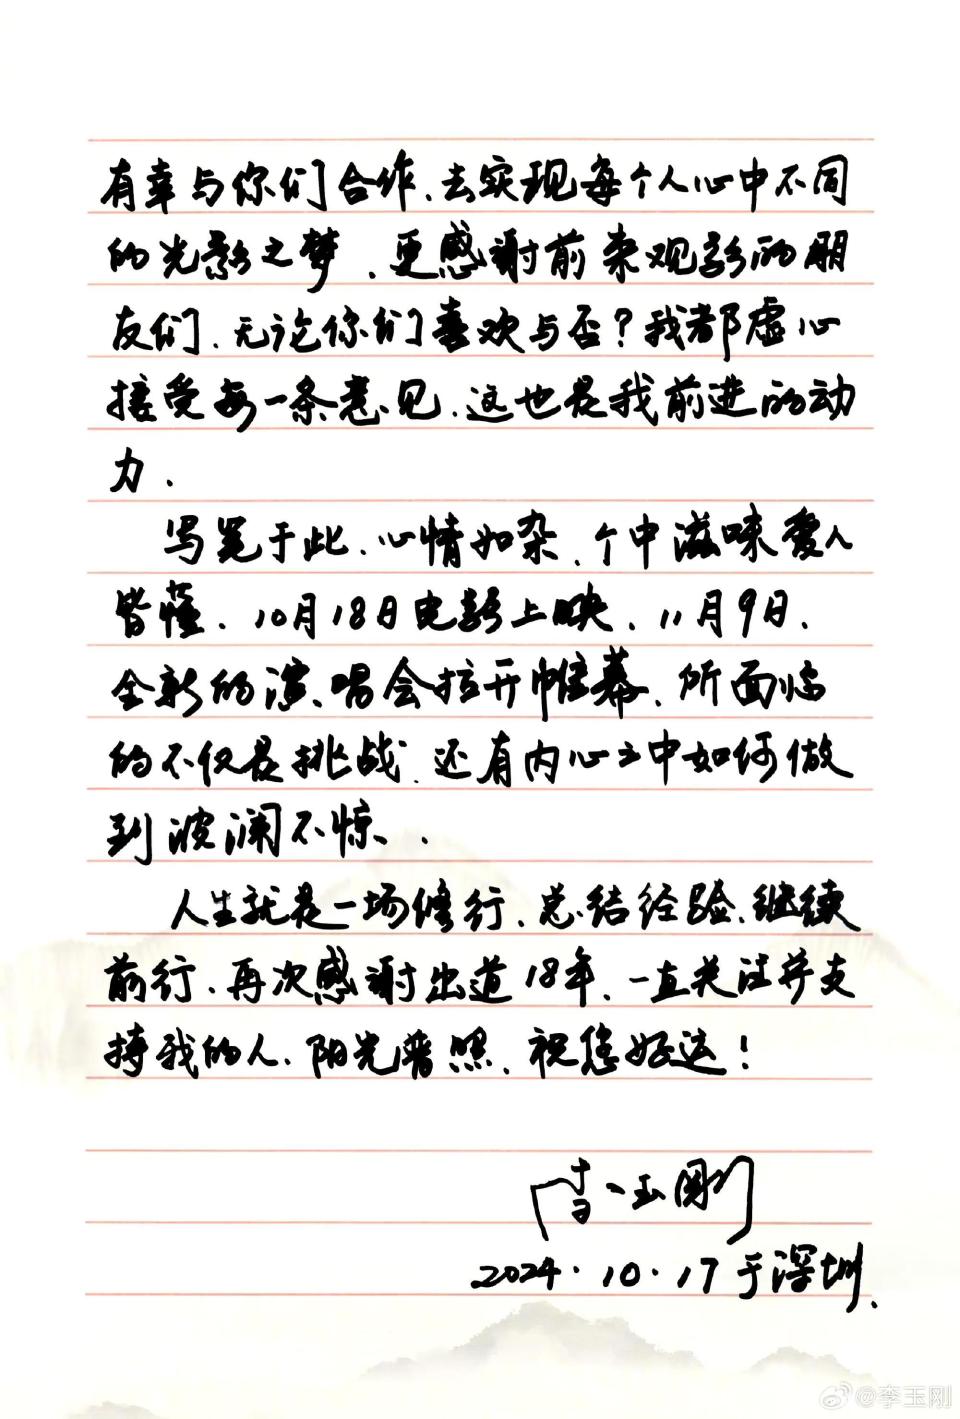 有幸与你们合作、去实现每个人心中不同
的光影之梦、更感谢前来观影的朋
友们、无论你们喜欢与否？我都虚心
接受每一条意见、这也是我前进的动
力.
写笔于此、心情如杂、个中滋味爱人
皆懂、10月18日电影上映、11月9日、
全新的演唱会拉开帷幕、所面临
的不仅是挑战、还有内心之中如何做
到波澜不惊、.
人生就是一场修行、总结经验、继续
前行、再次感谢出道18年、一直关注并支
持我的人、阳光普照、祝您好运！
李玉刚
2024·10·17于深圳、
@李玉刚